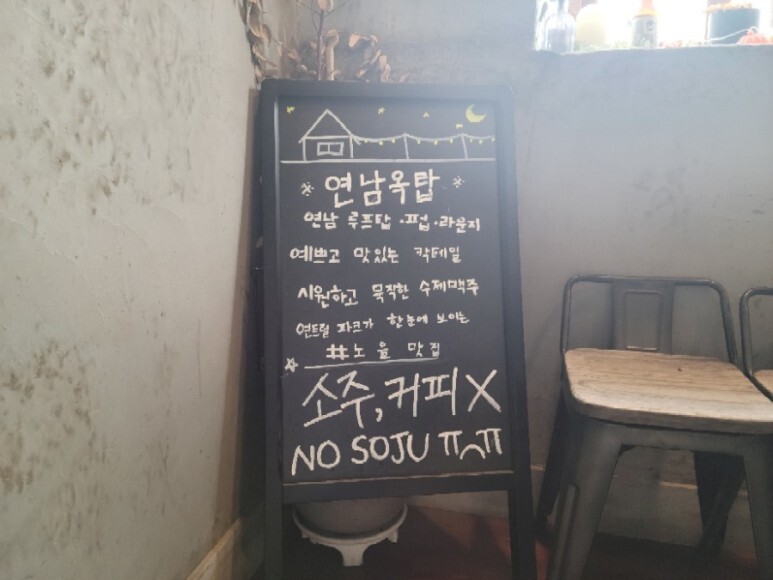 연남옥탑
연남 루프탑·펍·라운지
예쁘고 맛있는 칵테일
시원하고 묵직한 수제맥주
연트럴 파크가 한눈에 보이는
#노을맛집
소주,커피X
NO SOJU ㅠ^ㅠ